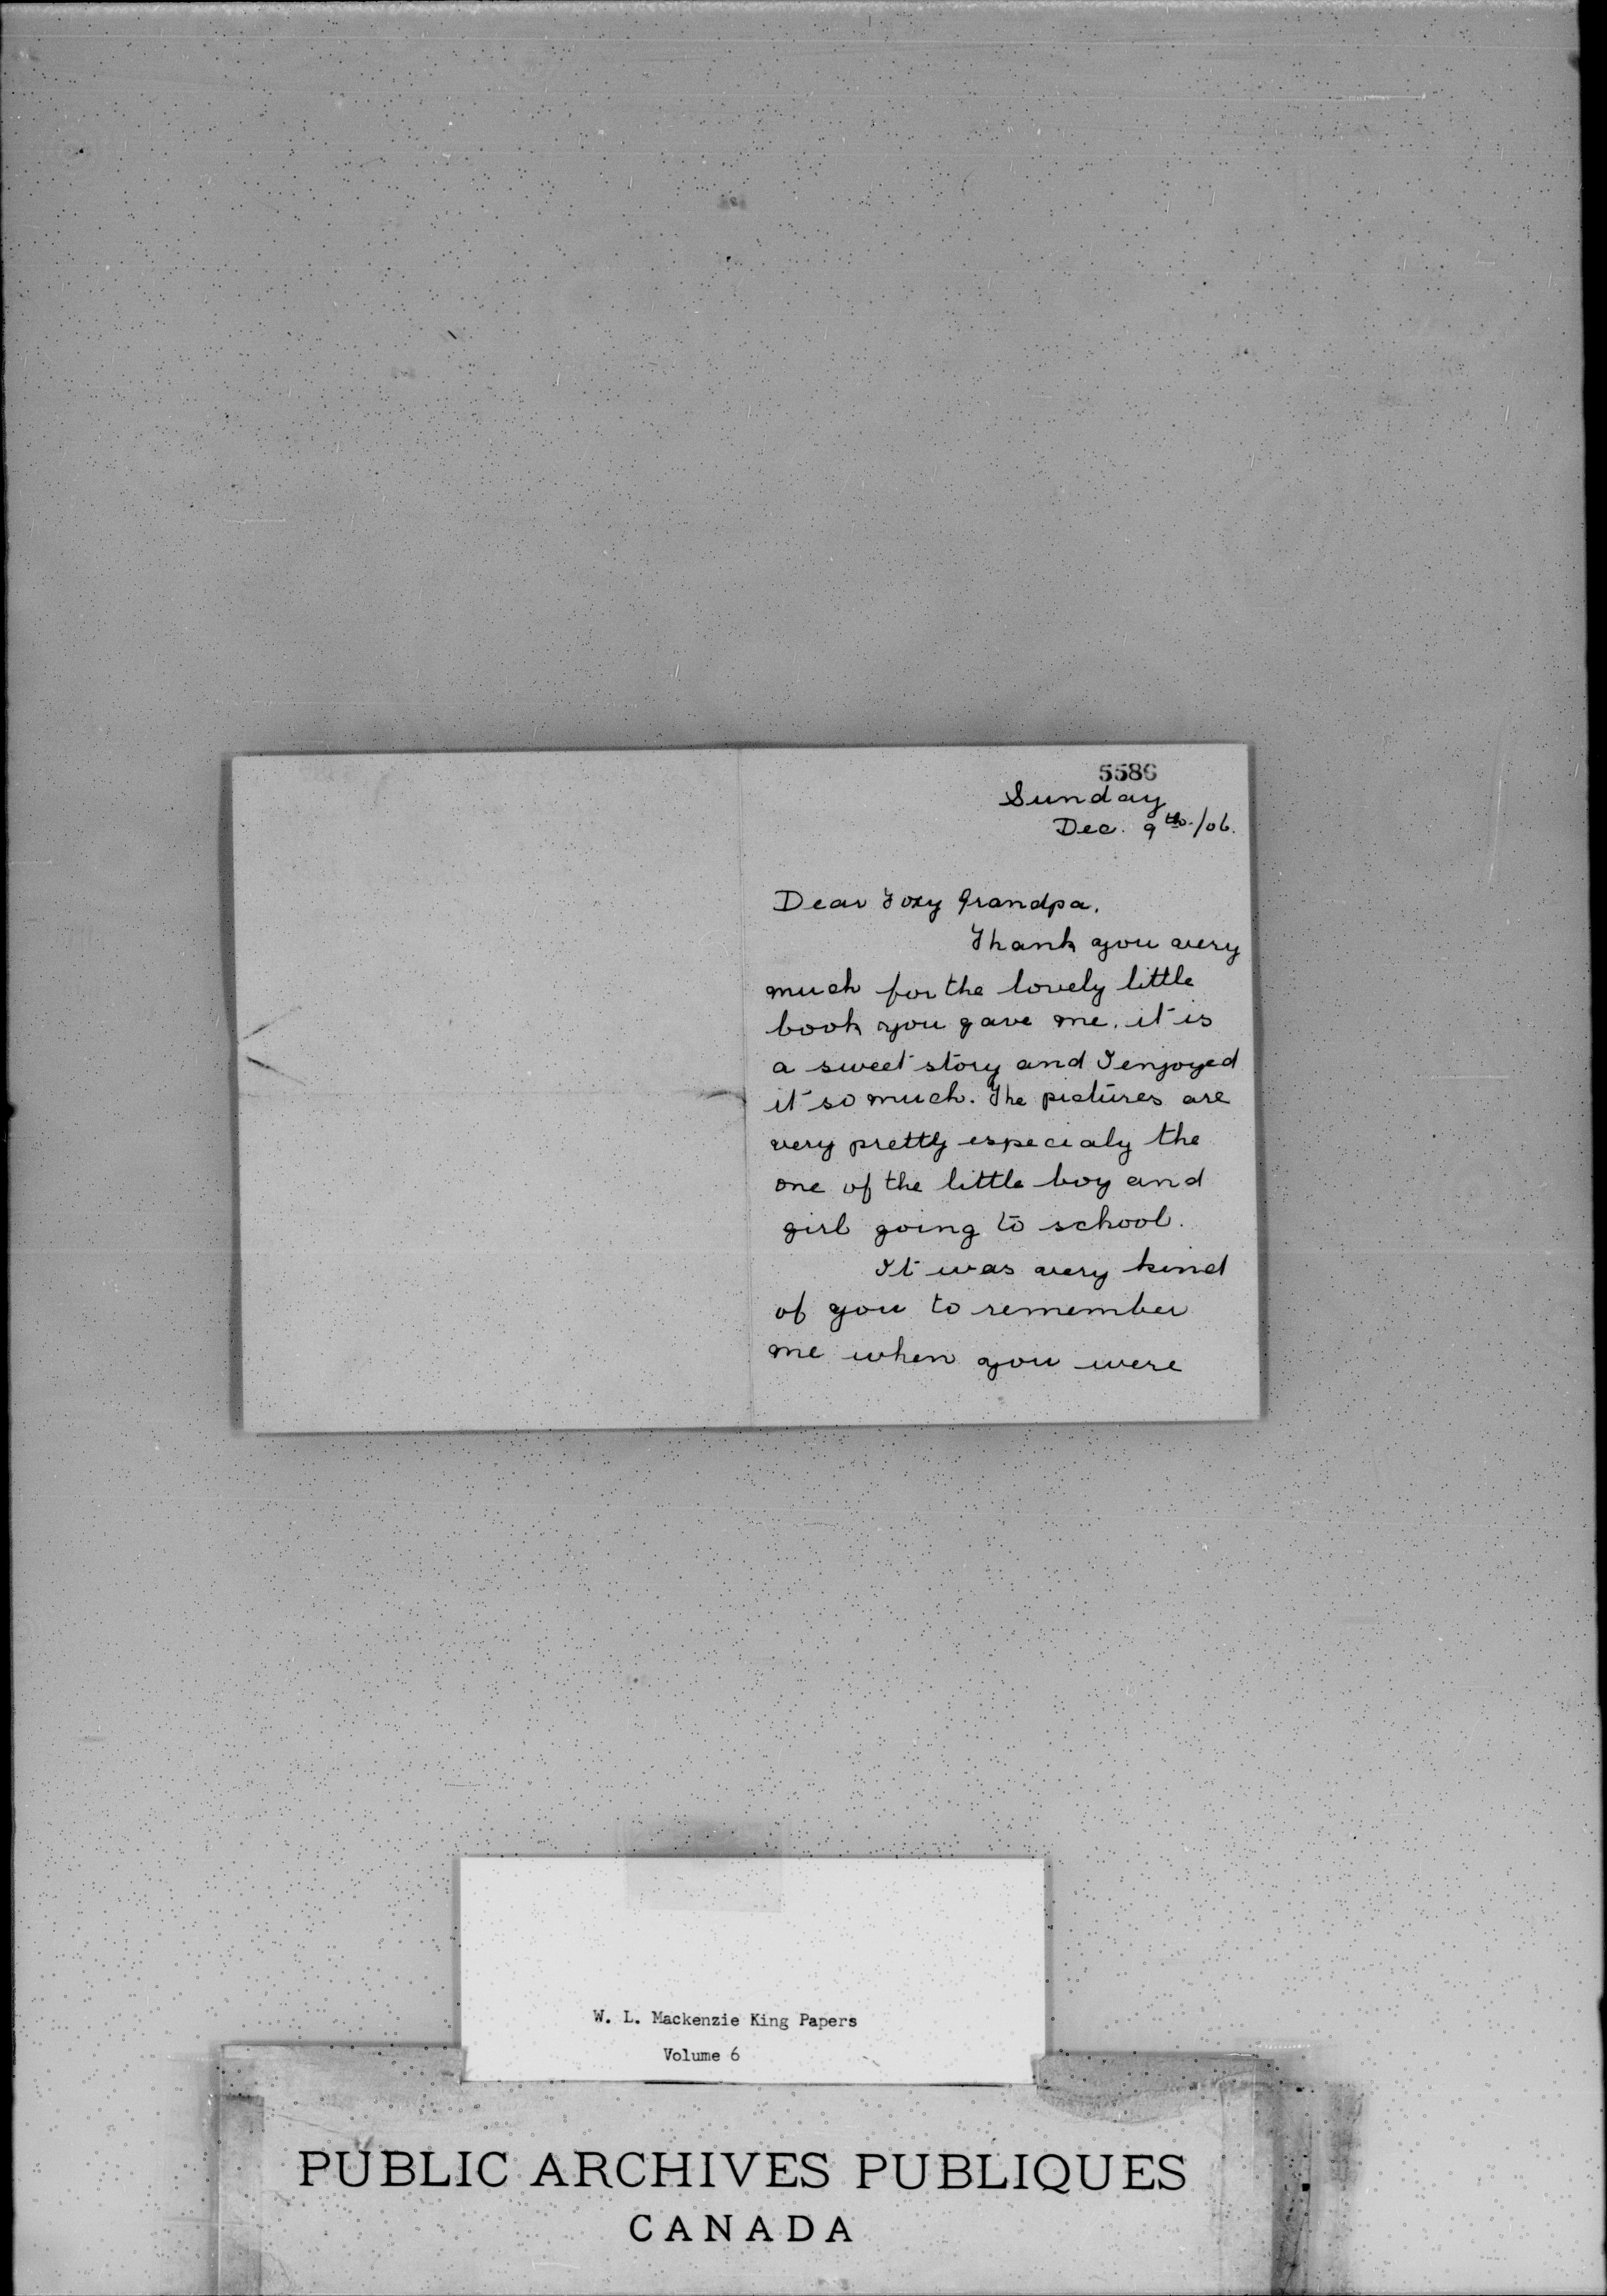 5586
Sunday
Dec. 9th./06.
Dear Foxy Grandpa.
Thank you very
much for the lovely little
book you gave me. it is
a sweet story and I enjoyed
it so much. The pictures are
very pretty especialy the
one of the little boy and
girl going to school.
It was very kind
of you to remember
me when you were
W. L. Mackenzie King Papers
Volume 6
PUBLIC ARCHIVES PUBLIQUES
CANADA